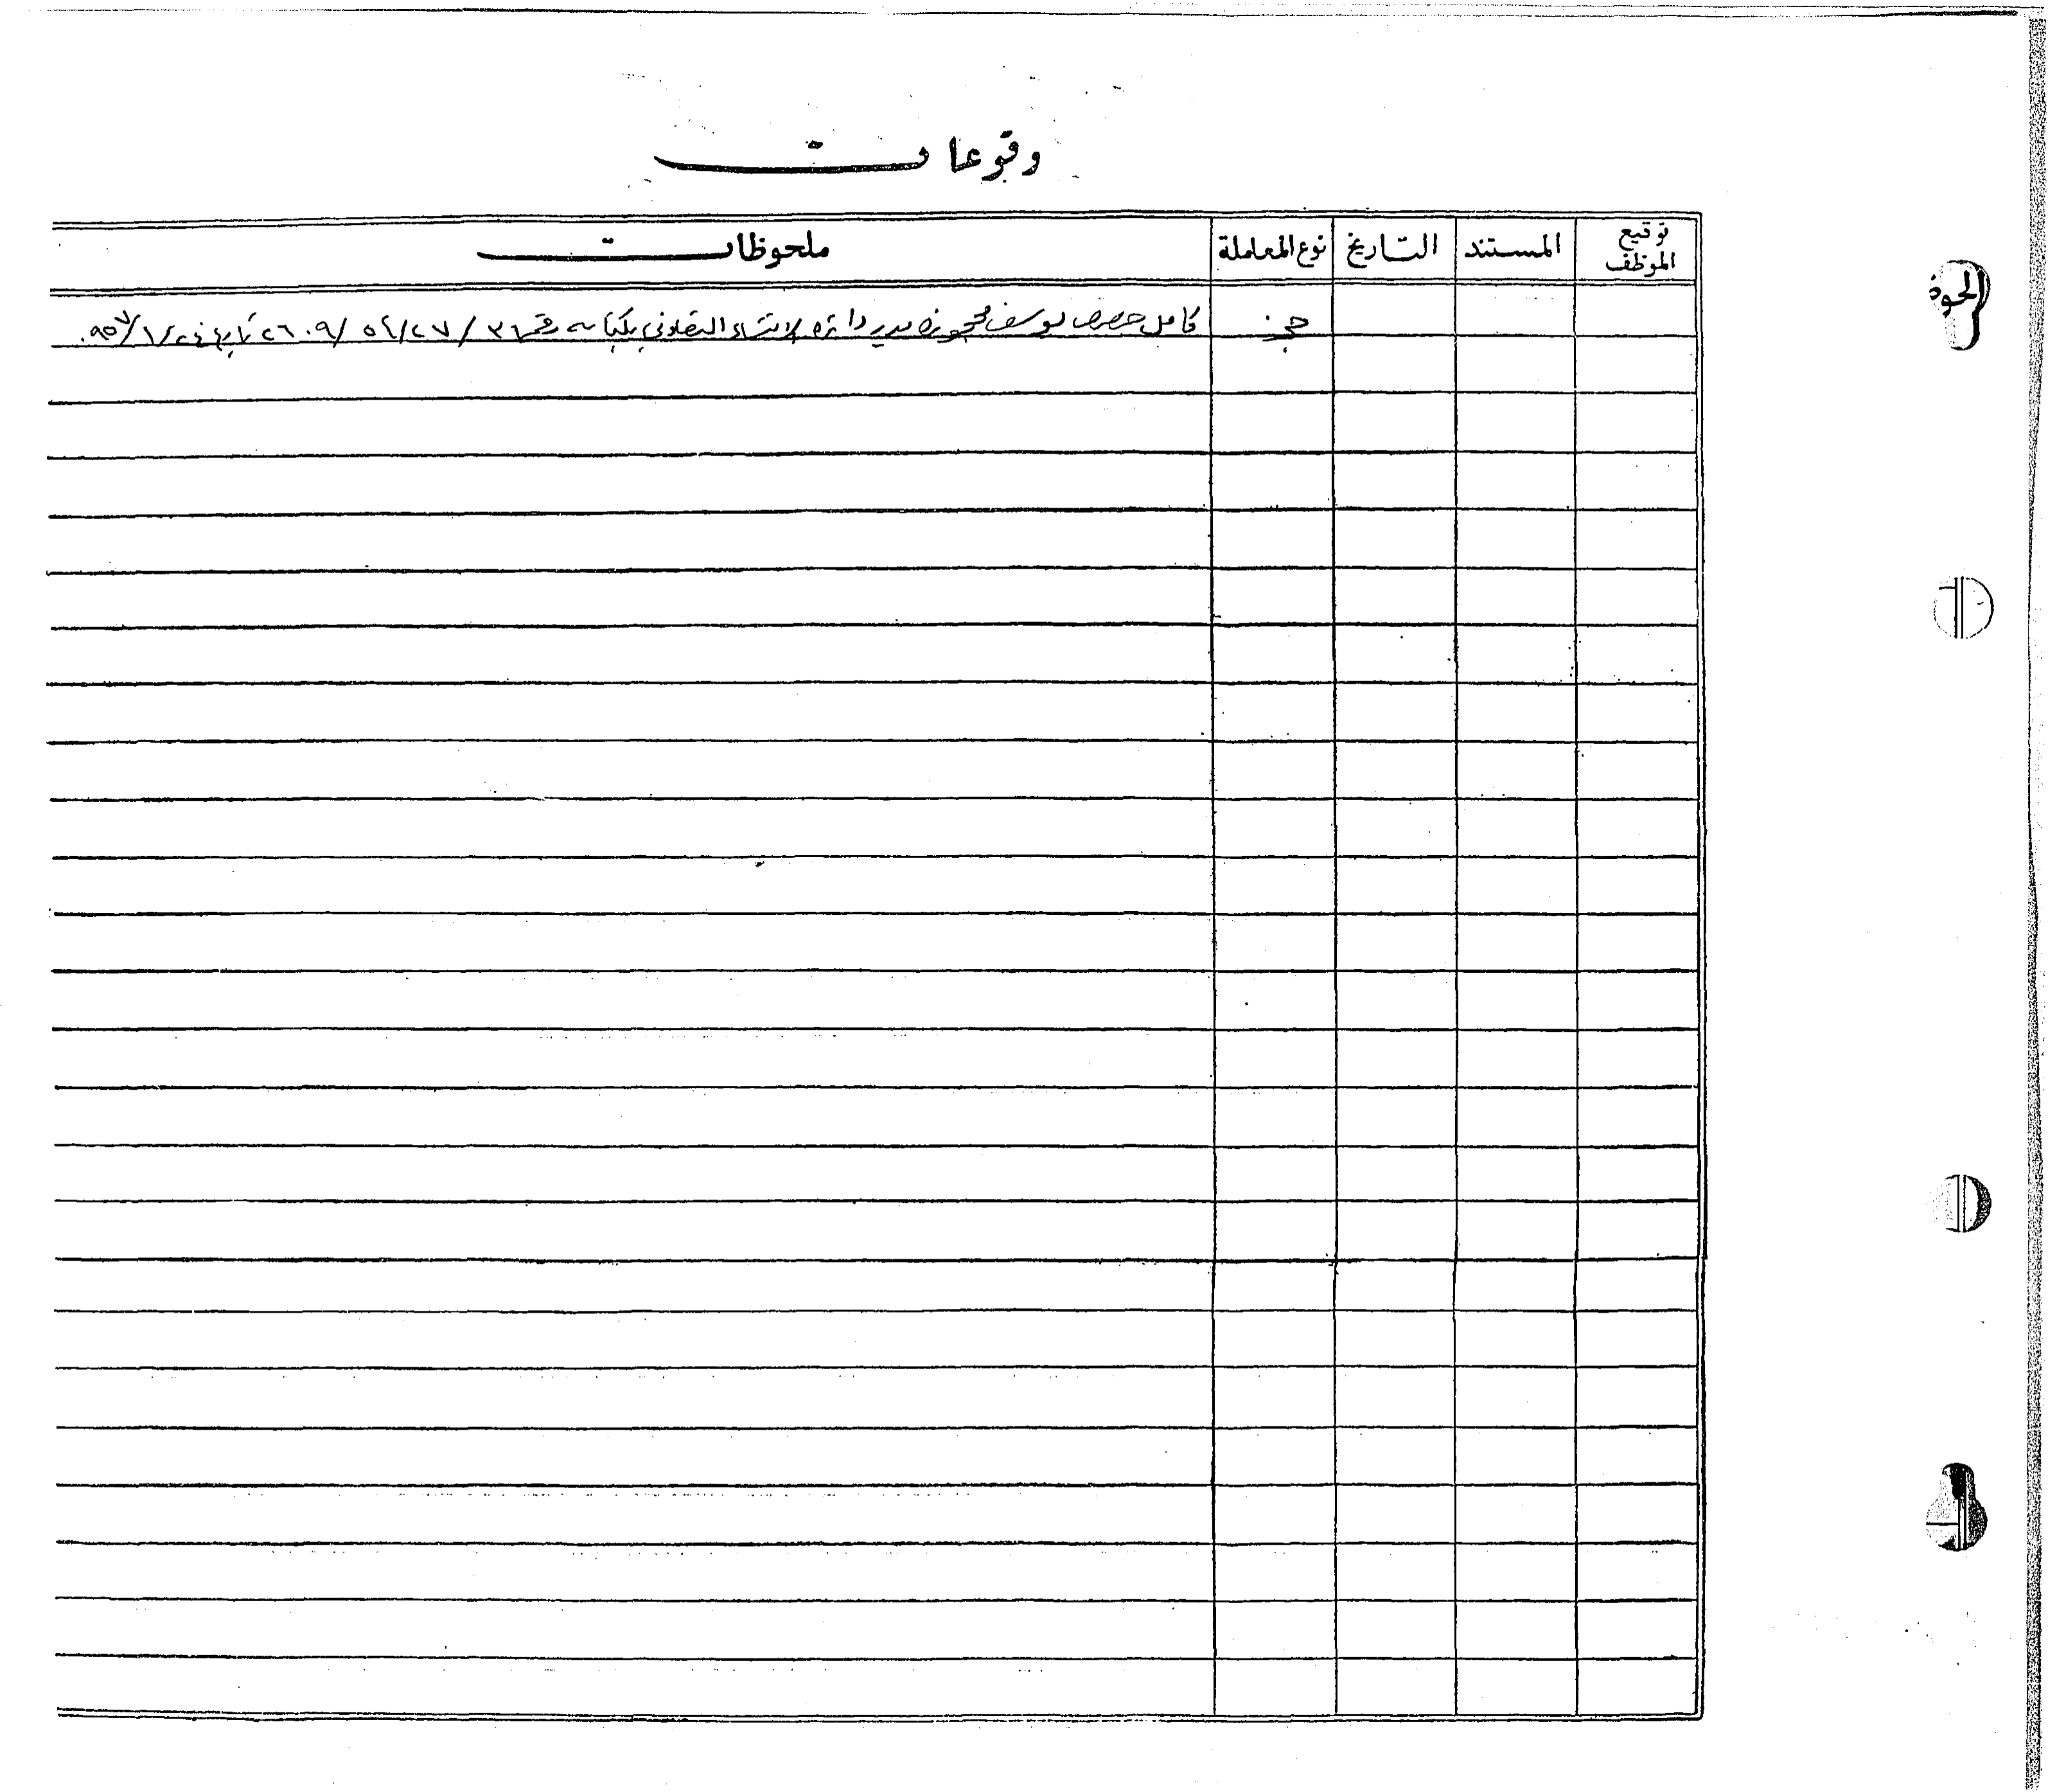 وقوعات
توقيع الموظف المستند التاريخ نوع المعاملة ملحوظات
حجز كامل حصص يوسف محجوزه مدير دائره الانشاء التعاوني بكتابه رقم ٣٦/٢٧/٥٢/٢٦٠٩ تاريخ ٢٤/١/٩٥٧